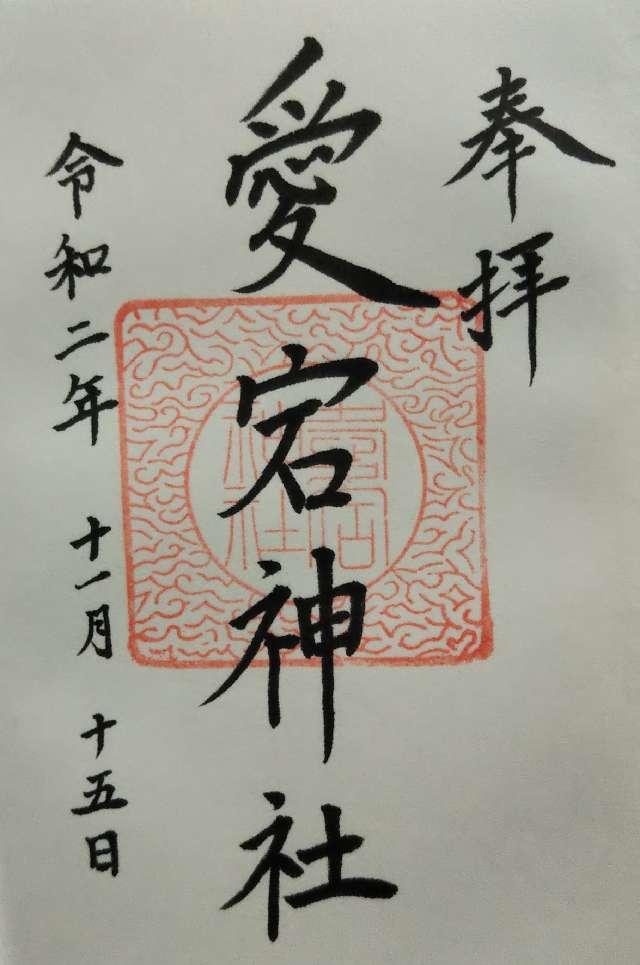 奉拝
愛宕神社
令和二年 十一月 十五日